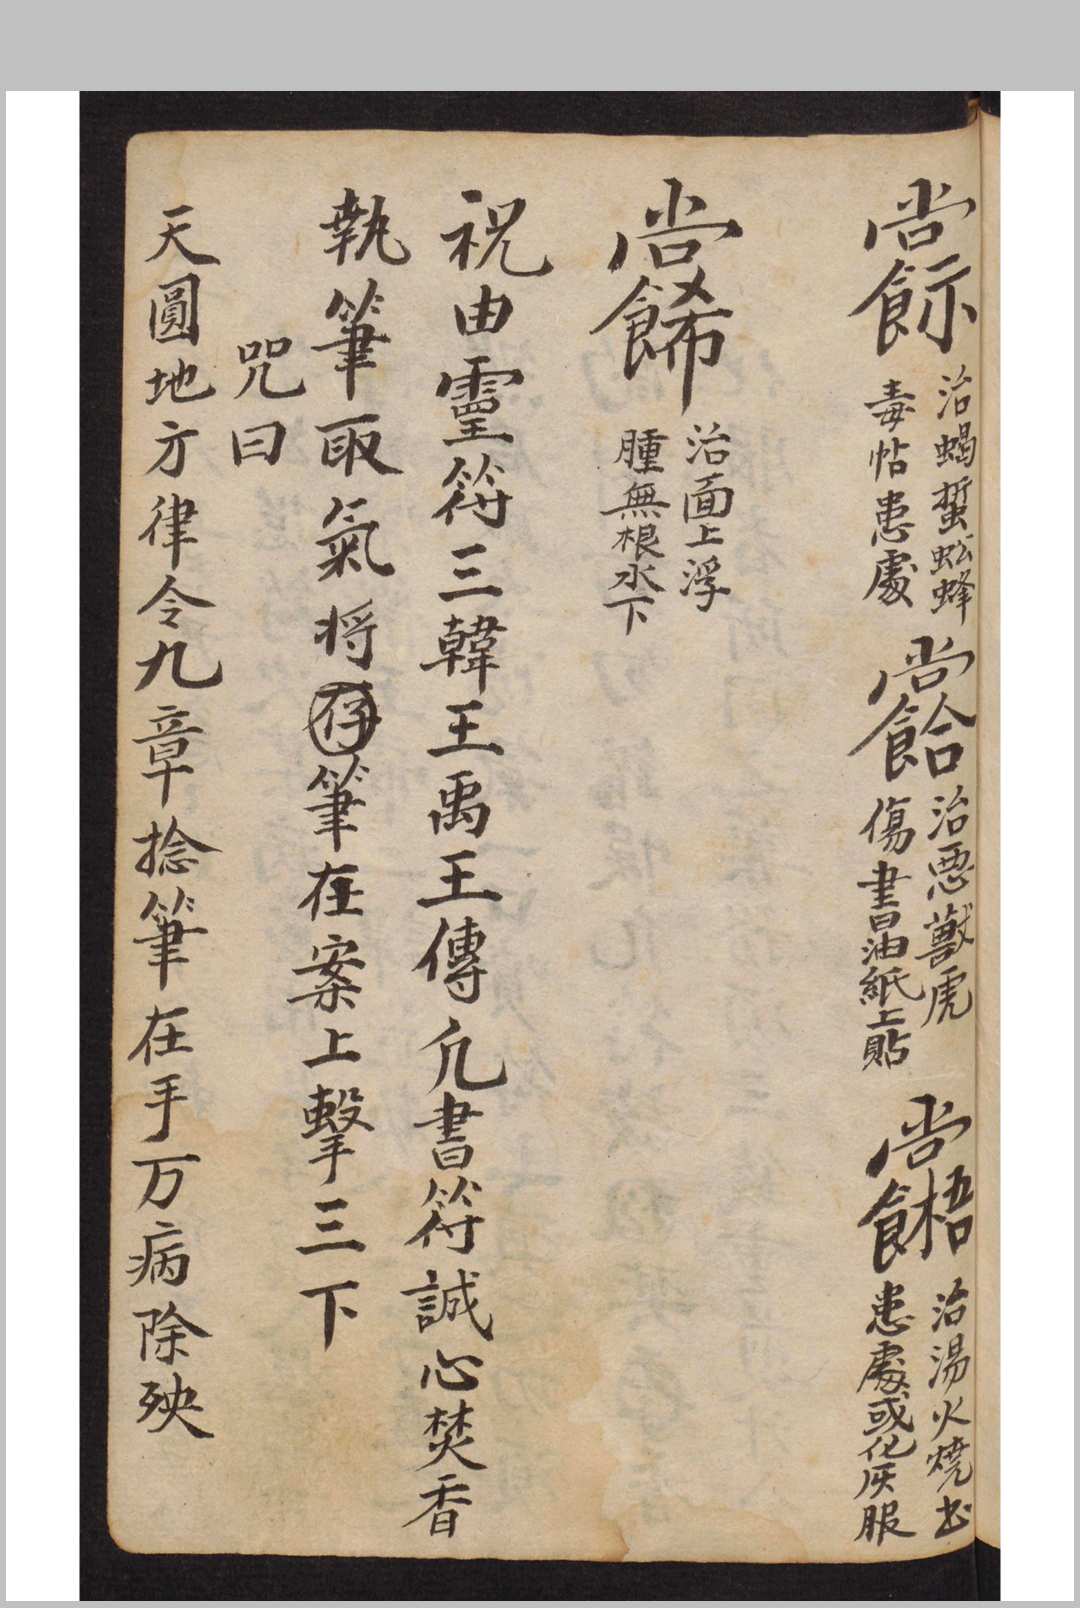 尚食示
治蝎蜇蚣蜂
毒帖患處
尚食合
治悪獸虎
傷書油紙上貼
尚食梧
治湯火燒书
患處或化灰服
尚食希
治面上浮
腫無根水下
祝由靈符三韓王禹王傳凢書符誠心焚香
執筆取氣将存筆在案上擊三下
咒曰
天圓地方律令九章捻筆在手万病除殃